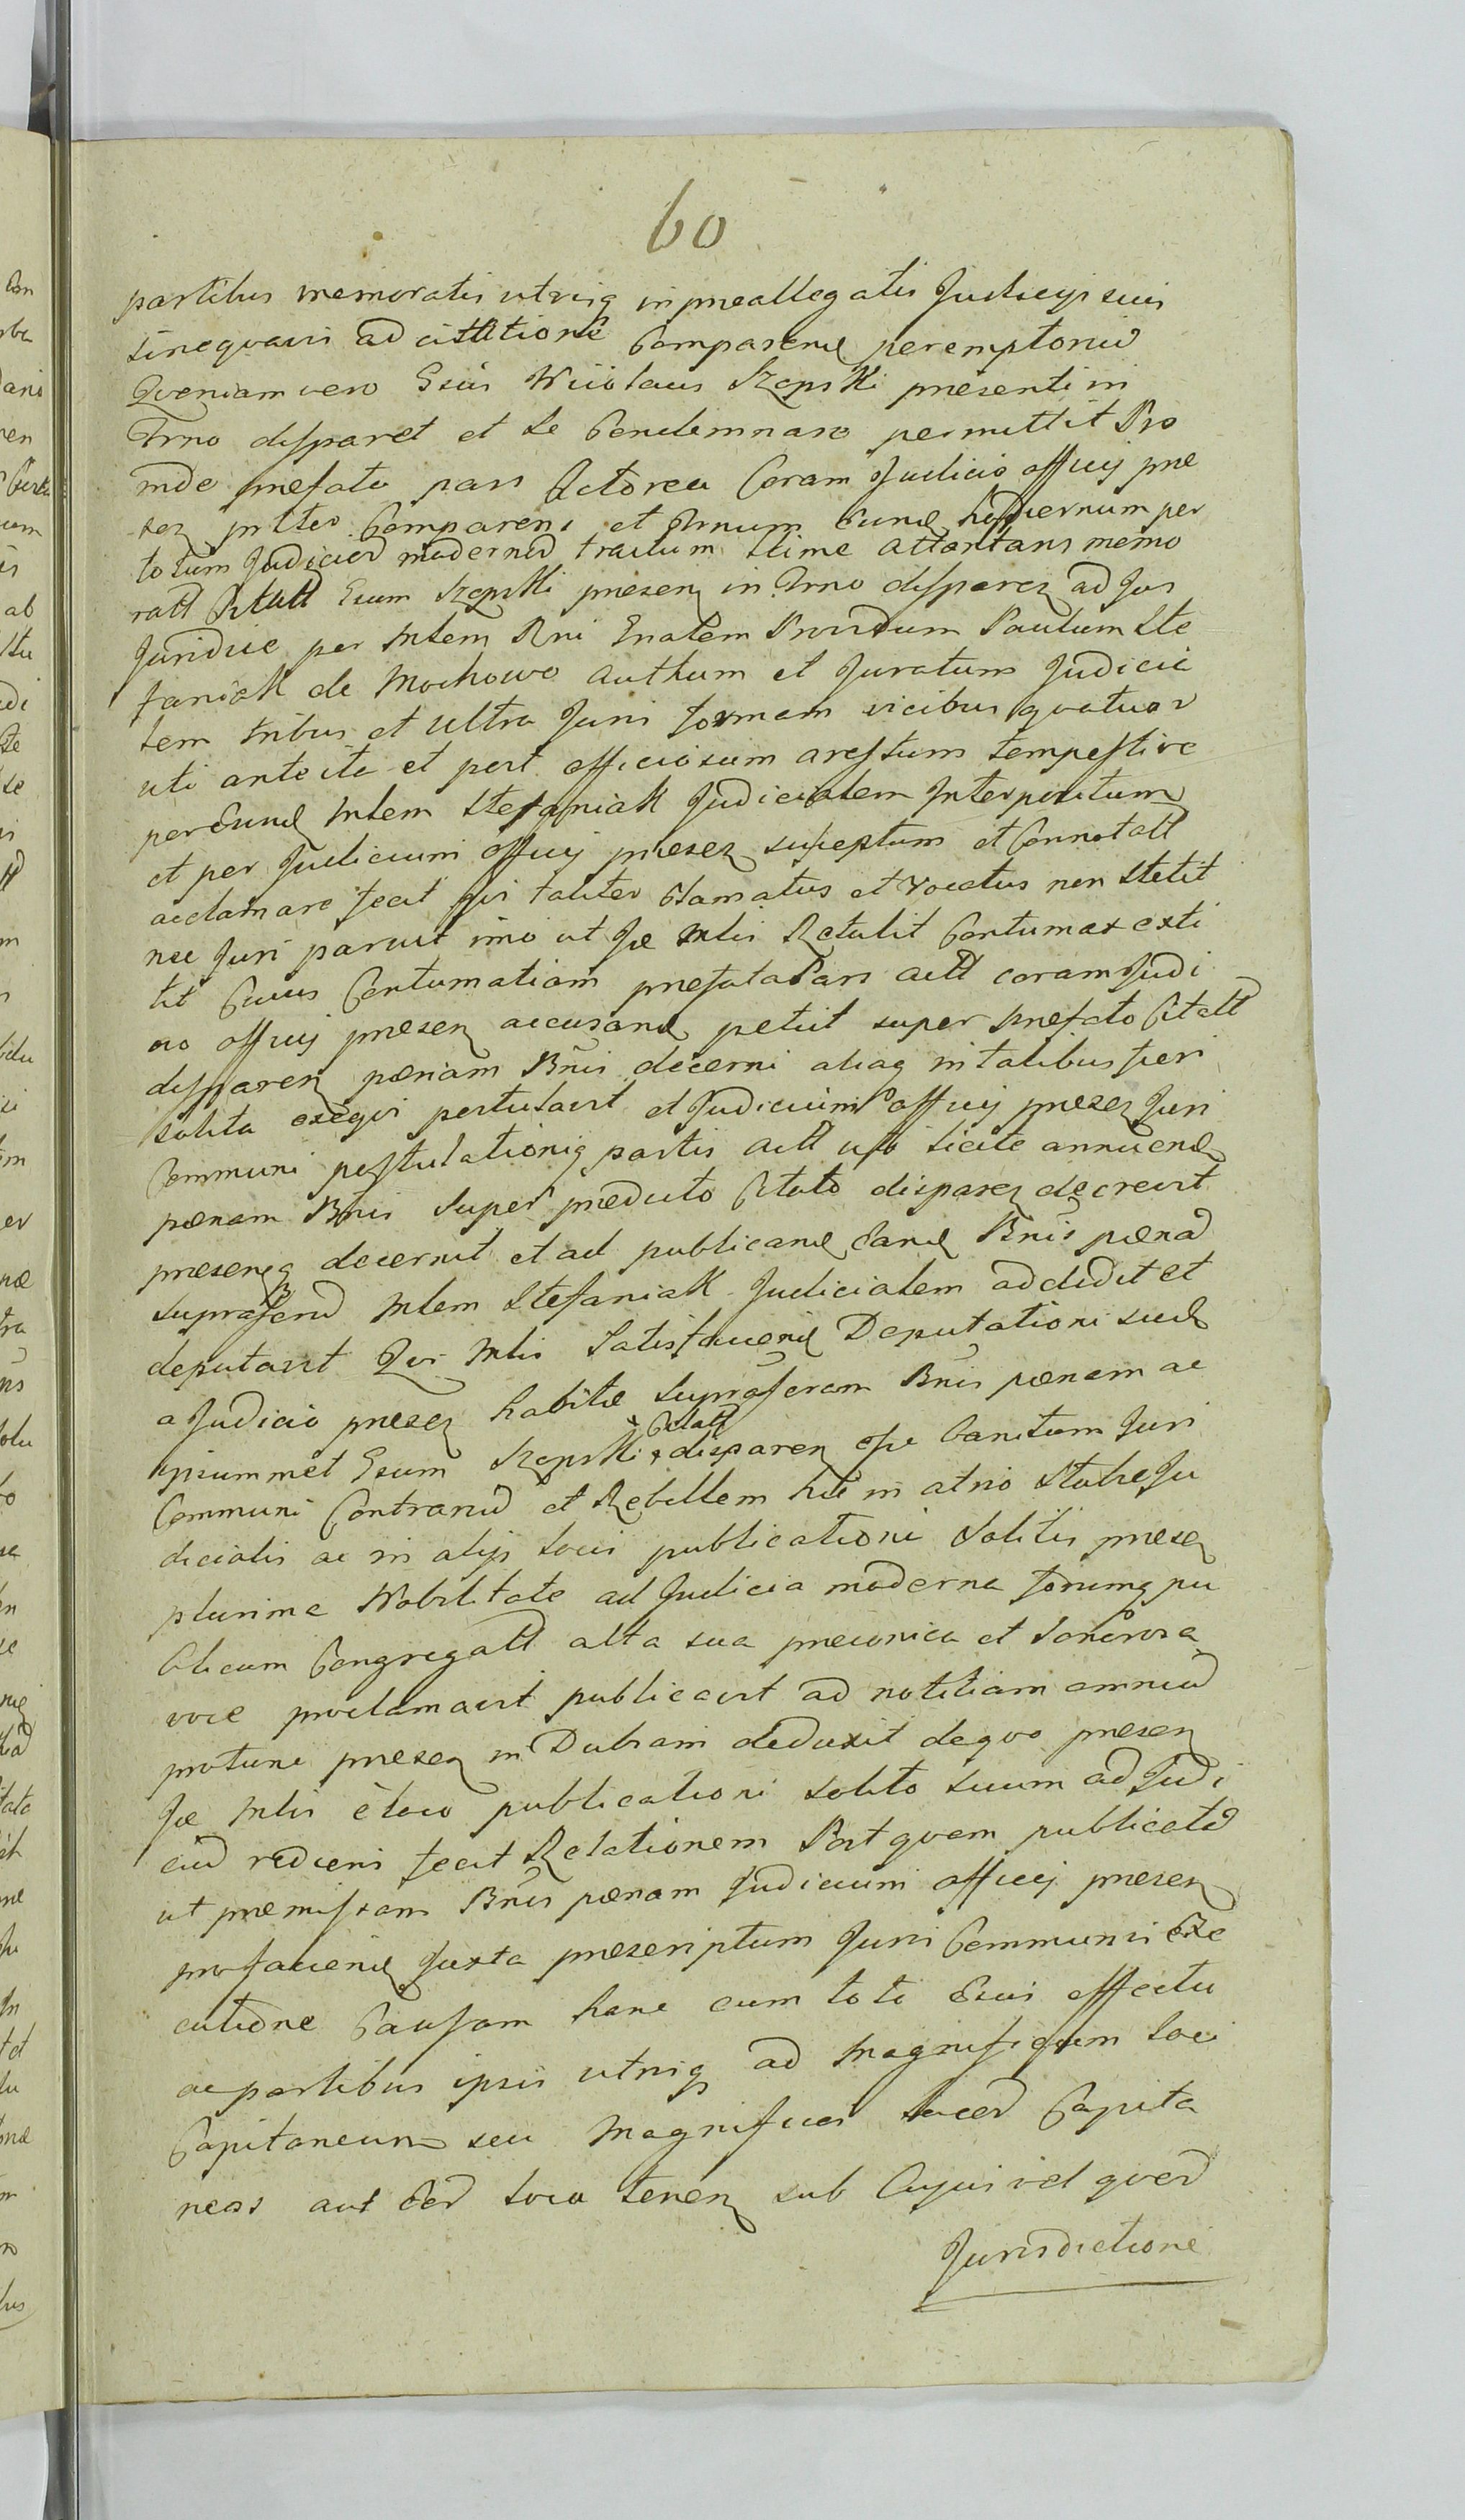 60
partibus memoratis utrisq in preallegatis Judicys suis
sinequavis ad cittatione Comparend peremptorid
Qveniam vero Gsus Nicolaus Rzepski presenti in
Trno disparet et se Condemnare permittit Pro
inde prefata pars Actorea Coram Judicio officij pre
sen pntter Comparens et Trnum Eund hodiernum per
totum Judicior modernor tractum stime attentans memo
ratt Citatt Gsum Rzepski presen in Trno disparen ad Jus
Juridice per Mlem Rni Gnalem Providum Paulum Ste
faniak de Mochowo Authum et Juratum Judicia
lem tribus et ultra Juris formam vicibus quatuor
uti ante ita et post officiosum arestum tempestive
per Eund Mlem Stefaniak Judicialem Interpositum
et per Judicium officij presen susceptum et Connotatt
acclamare fecit Qui taliter Clamatus et vocatus non Stetit
nec Juri paruit imo ut Je Mlis Retulit Contumax exti
tit Cuius Contumatiam prefata Pars actt coram Judi
cio officij presen accusand petiit super prefato Citatt
disparen pœnam Bnis decerni aliaq in talibus fieri
solita exeqvi postulavit et Judicium officij presen Juri
Communi postulationiq partis actt uti licite annuend
pœnam Bnis super prædicto Citato disparen decrevit
presensq decernit et ad publicand Eand Bnis pœnã
supraferid Mlem Stefaniak Judicialem addidit et
deputavit Qui Mlis Satisfaciend Deputationi suæ
a Judicio presen habitæ supraferam Bnis pœnam ac
ipsummet Gsum Rzepski Citatt disparen ope banitum Juri
Communi Contrariũ et Rebellem hic in atrio Stubæ Ju
dicialis ac in alijs locis publicationi Solitis presen
plurima Nobilitate ad Judicia moderna forumq pu
blicum Congregatt alta sua preconica et Sonorosa
voce proclamavit publicavit ad notitiam omniũ
protunc presen in Dubiam deduxit de quo presen
Je Mlis e loco publicationi solito suum ad Judi
ciũ rediens fecit Relationem Post qvam publicatã
ut præmissam Bnis pœnam Judicium officij presen
profaciend Juxta prescriptum Juris Communis Exe
cutione Causam hanc cum toto Eius effectu
ac partibus ipsis utrisq ad Magnificum loci
Capitaneum seu Magnificos locor Capita
neos aut Eor loca tenen sub Cujus vel quor
Jurisdictione